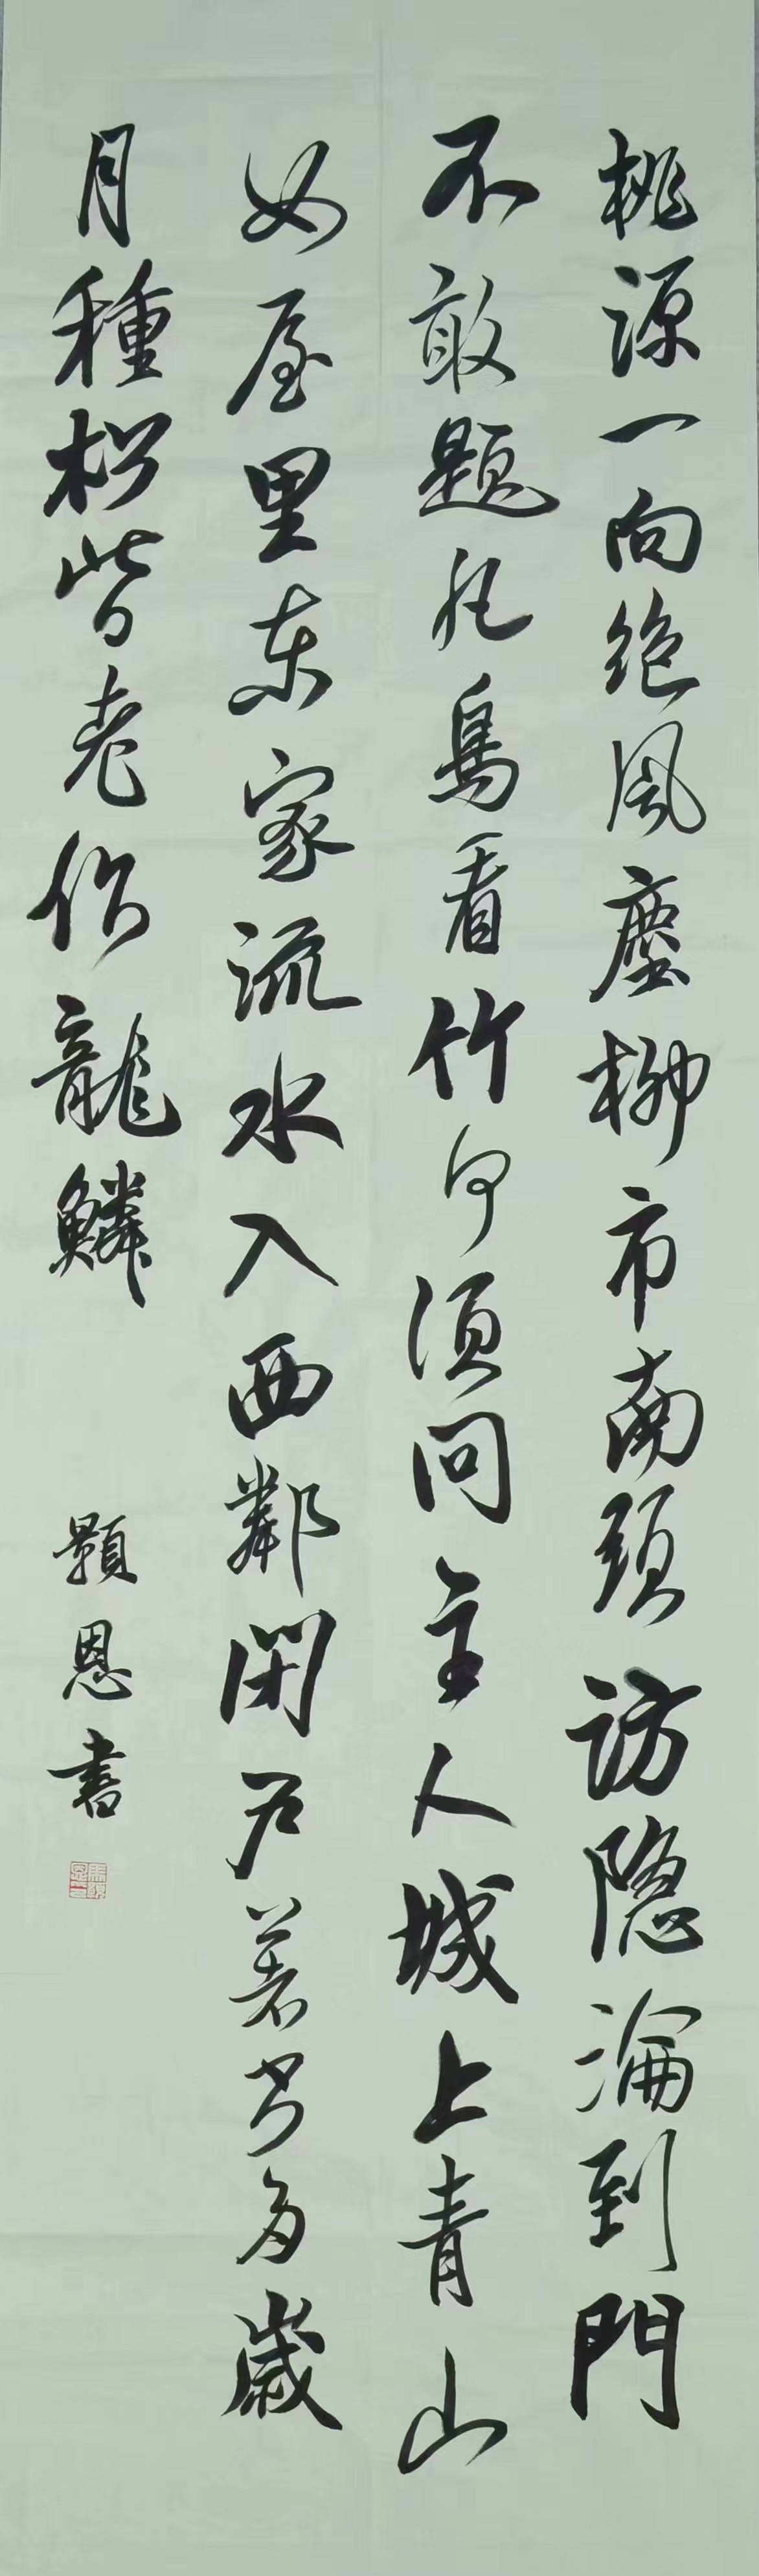 桃源一向絶風塵柳市南頭訪隐淪到門
不敢題凡鳥看竹何須問主人城上青山
如屋里东家流水入西鄰閉户著书多歲
月種松皆老作龍鱗
顯恩書